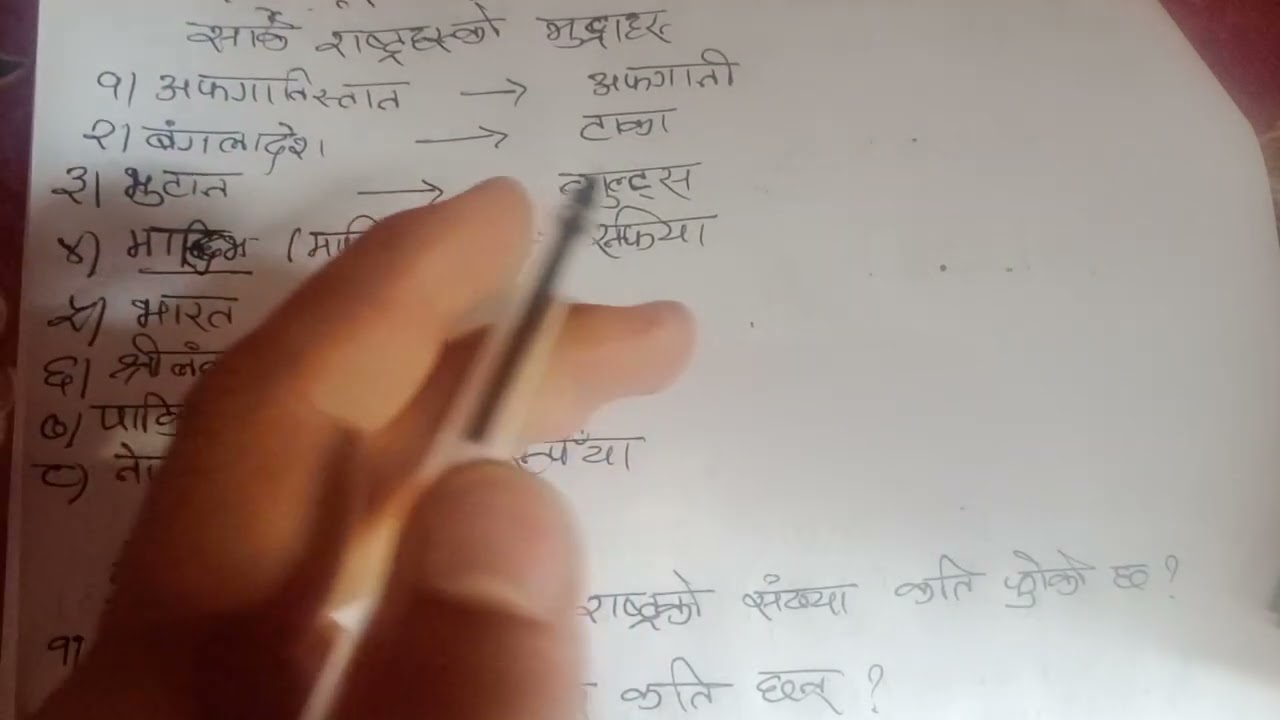 सार्क राष्ट्रहरुको मुद्राहरु
१) अफगानिस्तान → अफगानी
२) बंगलादेश → टाका
३) भुटान →
४) (मा रुफिया
५) भारत
६) श्रीलं
७) पाकि
८) ने रुपैँया
राष्ट्रको संख्या कति पुगेको छ ?
११
कति छन् ?